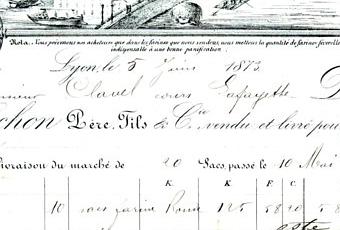 Nota. Nous prévenons nos acheteurs que dans les farines que nous vendons, nous mettons la quantité de farine féverolle
indispensable à une bonne panification.
Lyon, le 5 Juin 1873
Clavel cours Lafayette
chon Père, Fils & Cie vendu et livré pou
ivraison du marché de 20 Sacs, passé le 10 Mai
K. K. F. C.
10 sacs farine Ronde 125 58